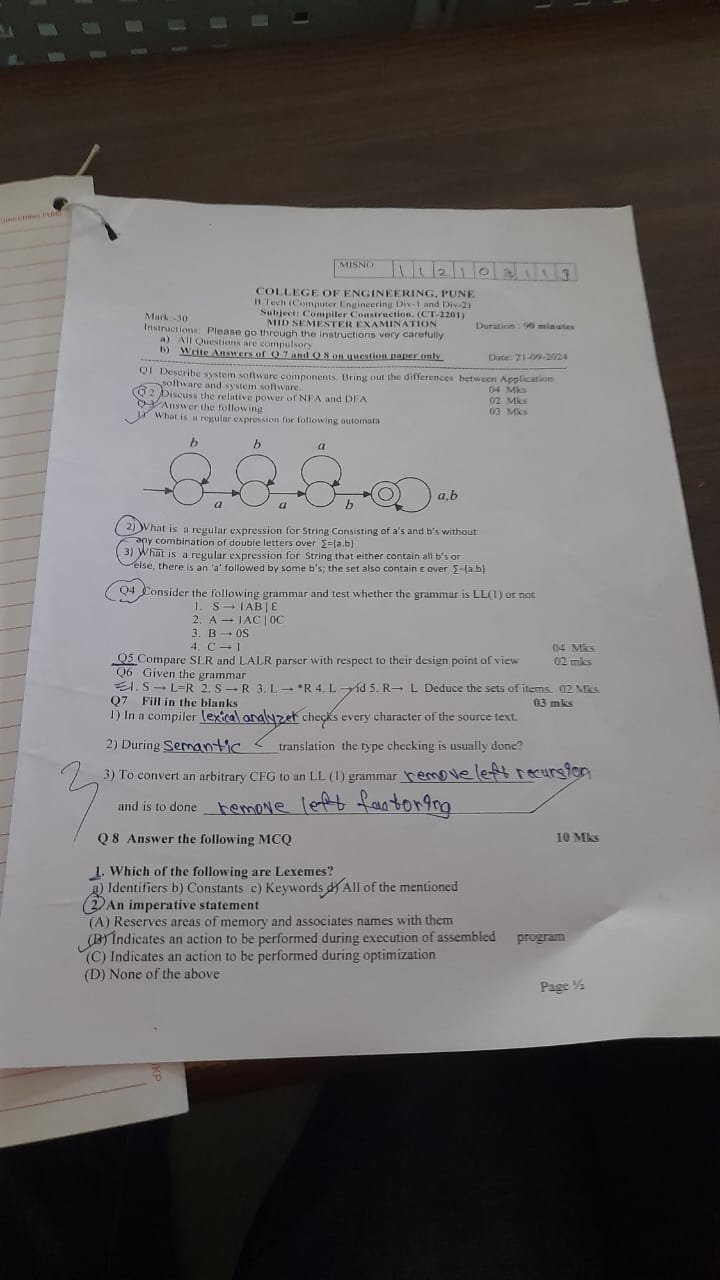 MISNO 1 1 2 1 0 3 1 1 9
COLLEGE OF ENGINEERING, PUNE
B.Tech (Computer Engineering Div-1 and Div-2)
Subject: Compiler Construction. (CT-2201)
Mark:-30 MID SEMESTER EXAMINATION Duration : 90 minutes
Instructions: Please go through the instructions very carefully.
a) All Questions are compulsory
b) Write Answers of Q 7 and Q 8 on question paper only Date: 21-09-2024
Q1 Describe system software components. Bring out the differences between Application
software and system software. 04 Mks
Q 2 Discuss the relative power of NFA and DFA 02 Mks
Q 3 Answer the following 03 Mks
1) What is a regular expression for following automata
b b a
a a b a,b
2) What is a regular expression for String Consisting of a's and b's without
any combination of double letters over Σ={a.b}
3) What is a regular expression for String that either contain all b's or
else, there is an 'a' followed by some b's; the set also contain ε over Σ={a.b}
Q4 Consider the following grammar and test whether the grammar is LL(1) or not
1. S → 1AB | Ɛ
2. A → 1AC | 0C
3. B → 0S
4. C → 1 04 Mks
Q5 Compare SLR and LALR parser with respect to their design point of view 02 mks
Q6 Given the grammar
1. S → L=R 2. S → R 3. L → *R 4. L → id 5. R→ L Deduce the sets of items. 02 Mks
Q7 Fill in the blanks 03 mks
1) In a compiler lexical analyzer checks every character of the source text.
2) During Semantic translation the type checking is usually done?
3) To convert an arbitrary CFG to an LL (1) grammar remove left recursion
and is to done remove left factoring
3
Q 8 Answer the following MCQ 10 Mks
1. Which of the following are Lexemes?
a) Identifiers b) Constants c) Keywords d) All of the mentioned
2. An imperative statement
(A) Reserves areas of memory and associates names with them
(B) Indicates an action to be performed during execution of assembled program
(C) Indicates an action to be performed during optimization
(D) None of the above
Page ½